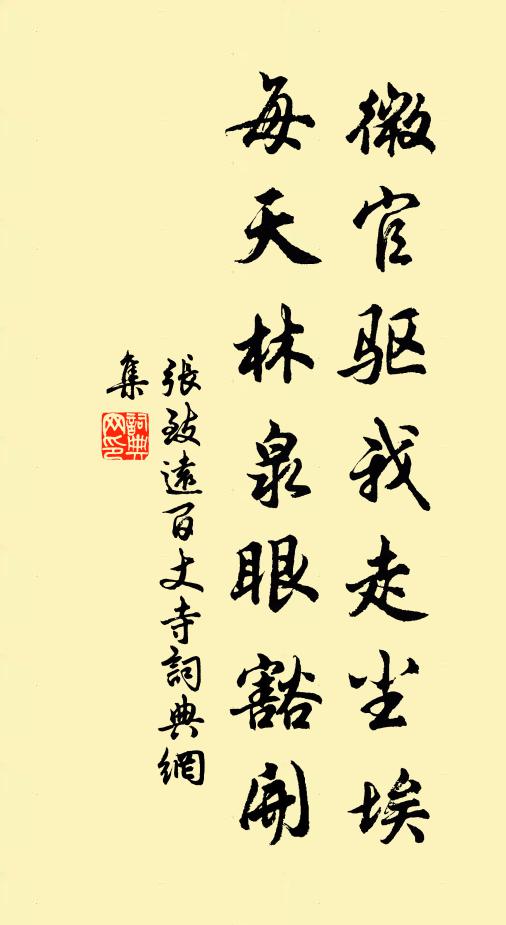 微官驱我走尘埃
每天林泉眼豁開
張致遠百丈寺詞典網
集
詞典
网印